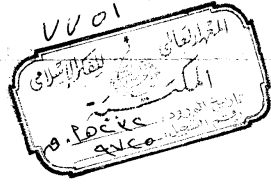 ٧٧٥١
المعهد العالمي للفكر الإسلامي
المكتبة
تاريخ الورود
رقم التسجيل ٩٧٢٥